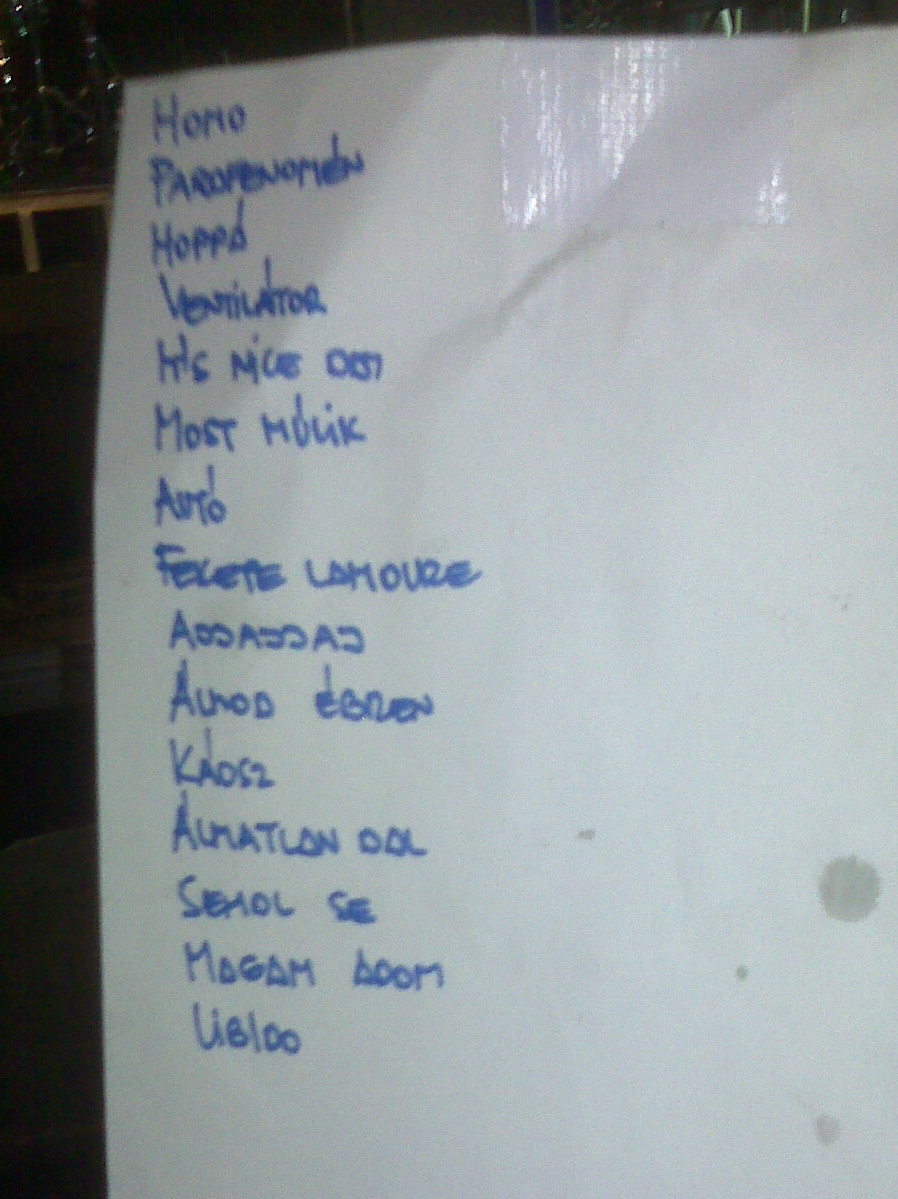 HOMO
PAROFENOMÉN
HOPPÁ
VENTILÁTOR
It's NiCE
MOST MÚLIK
AUTÓ
FEKETE LAMOURE
ÁLMOD ÉBREN
KÁOSZ
ÁLMATLAN DAL
SEHOL SE
MAGAM ADOM
LiBIDO